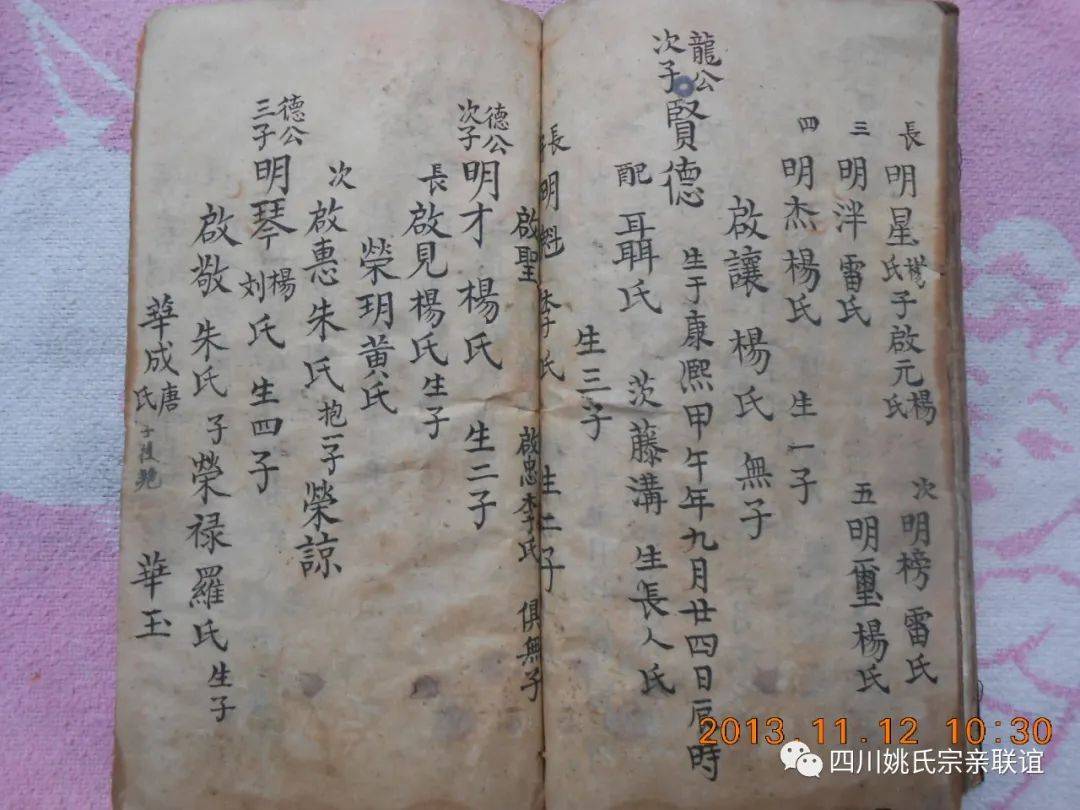 長 明星 氏 子啟元楊氏 次 明榜 雷氏
三 明泮 雷氏 五 明璽 楊氏
四 明杰 楊氏 生一子
啟讓 楊氏 無子
龍公次子 賢德 生于康熙甲午年九月廿四日辰時
配 聶氏 茨藤溝 生長人氏
生三子
長 明魁 李氏 生二子
啟聖 啟忠李氏 俱無子
德公次子 明才 楊氏 生二子
長 啟見 楊氏 生子
榮玥 黄氏
次 啟惠 朱氏 抱一子 榮諒
德公三子 明琴 楊刘氏 生四子
啟敬 朱氏 子榮禄 羅氏 生子
華成 唐氏 華玉
2013.11.12 10:30
四川姚氏宗亲联谊